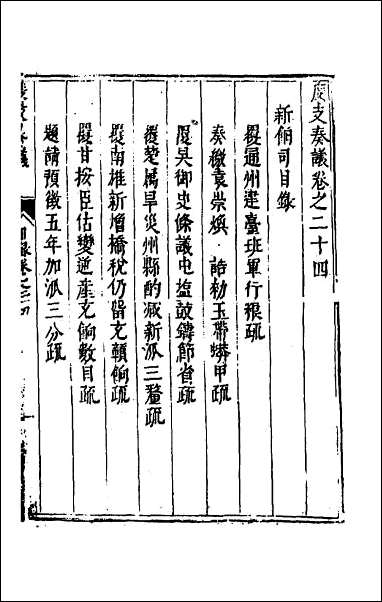 度支奏議卷之二十四
新餉司目錄
覆通州建臺班軍行粮疏
奏繳袁崇煥誥勅玉帶蟒甲疏
覆吳御史條議屯塩鼓鑄節省疏
覆楚属旱災州縣酌减新派三釐疏
覆南雄新增橋稅仍留充贛餉疏
覆甘按臣估變逆產充餉數目疏
題請預徵五年加派三分疏